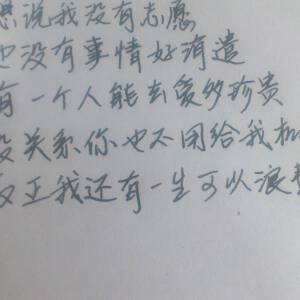 说我没有志愿
也没有事情好消遣
有一个人能去爱多珍贵
没关系你也不用给我机
反正我还有一生可以浪费